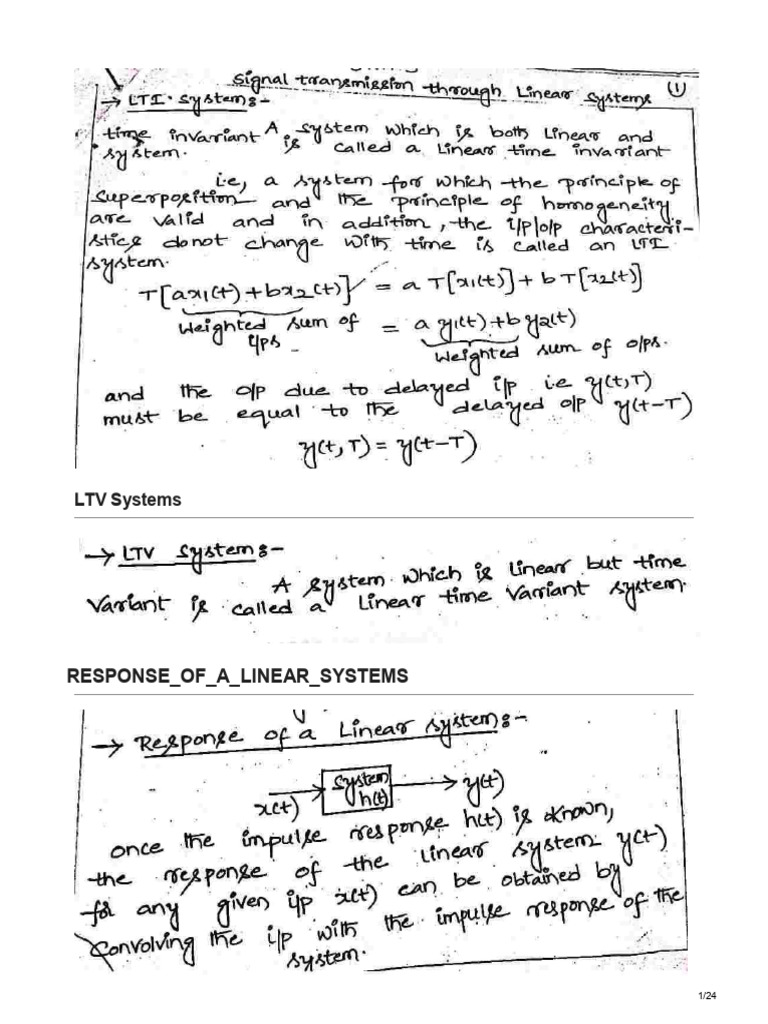 Signal transmission through Linear Systems (1)
→ LTI System:-
A system which is both Linear and
time invariant is called a Linear time invariant
system.
i.e, a system for which the principle of
superposition and the principle of homogeneity
are valid and in addition, the i/p|o/p characteri-
stics donot change with time is called an LTI
system.
T[ax1(t)+bx2(t)] = a T[x1(t)] + b T[x2(t)]
Weighted sum of i/ps = a y1(t)+b y2(t)
Weighted sum of o/ps.
and the o/p due to delayed i/p i.e y(t,T)
must be equal to the delayed o/p y(t-T)
y(t,T) = y(t-T)
LTV Systems
→ LTV System:-
A system which is Linear but time
Variant is called a Linear time Variant system.
RESPONSE_OF_A_LINEAR_SYSTEMS
→ Response of a Linear system:-
x(t) → System h(t) → y(t)
once the impulse response h(t) is known,
the response of the linear system y(t)
for any given i/p x(t) can be obtained by
Convolving the i/p with the impulse response of the
system.
1/24